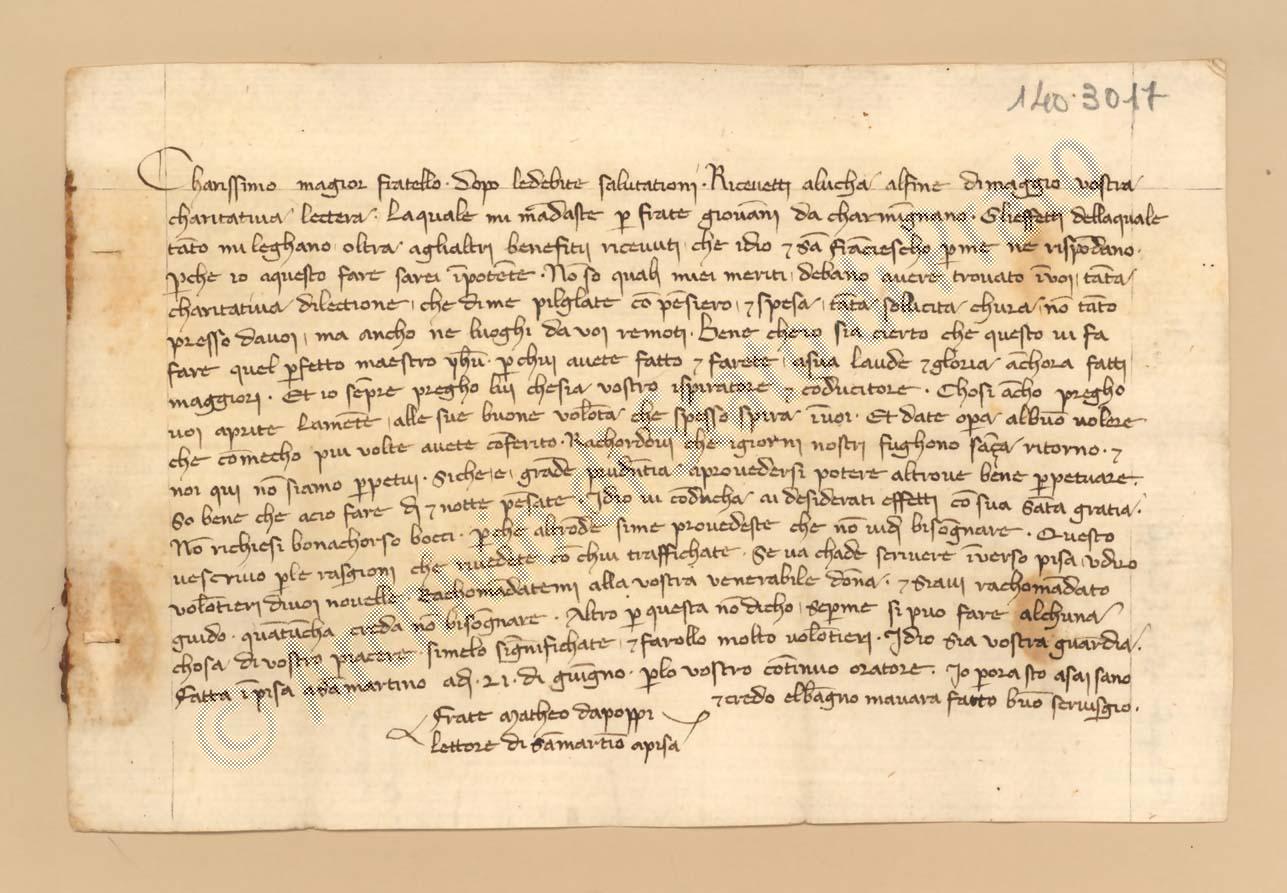 140.3017
Charissimo magior fratello. dopo ledebite salutationi. Ricevetti alucha alfine dimaggio vostra
charitativa lectera. Laquale mi mãdaste p frate giovãni da charmignano. Glieffetti dellaquale
tãto mi leghano oltra aglialtri benefitii ricevuti che idio ⁊ Sã Franciescho p me ne rispõdano.
pche io aquesto fare sarei ĩpotẽte. Nõ so quali miei meriti debano avere trovato ĩ voi tãta
charitativa dilectione che di me pilglate cõ pẽsiero ⁊ spesa tãta sollicita chura nõ tãto
presso davoi, ma ancho ne luoghi da voi remoti. Bene cheio sia cierto che questo vi fa
fare quel pfetto maestro yhũ. p chui avete fatto ⁊ farete asua laude ⁊ gloria ãchora fatti
maggiori. Et io sẽpre pregho lui chesia vostro ispiratore ⁊ cõducitore. Chosi ãcho pregho
voi aprite lamẽte alle sue buone volõta che spesso spira ĩ voi. Et date opa albuõ volere
che cõmecho piu volte avete cõferito. Rachordovi che igiorni nostri fughono sãça ritorno. ⁊
noi qui nõ siamo ppetui. Siche e grãde prudẽtia aprovedersi potere altrove bene ppetuare.
So bene che acio fare dj ⁊ notte pẽsate. Idio vi cõducha ai desiderati effetti cõ sua sãta gratia.
Nõ richiesi bonachorso bocci. pche altrõde sime provedeste che nõ vidj bisõgnare. Questo
vescrivo ple rasgioni che rivedete cõ chui traffichate. Se va chade scrivere ĩverso pisa, udiro
volõtieri divoi novelle. Rachomãdatemi alla vostra venerabile dõna. ⁊ Siavi rachomãdato
guido. quãtũcha creda nõ bisõgnare. Altro p questa nõ dicho, se p me si puo fare alchuna
chosa di vostro piacere. simelo significhate, ⁊ farollo molto volõtieri. Idio sia vostra guardia.
Fatta ĩ pisa a Sã martino adj. 21. di giugno. plo vostro cõtinuo oratore. Io p ora sto asai sano
⁊ credo elbãgno mavara fatto buõ servisgio.
Frate Matheo dapoppi
lettore di Sãmartino apisa